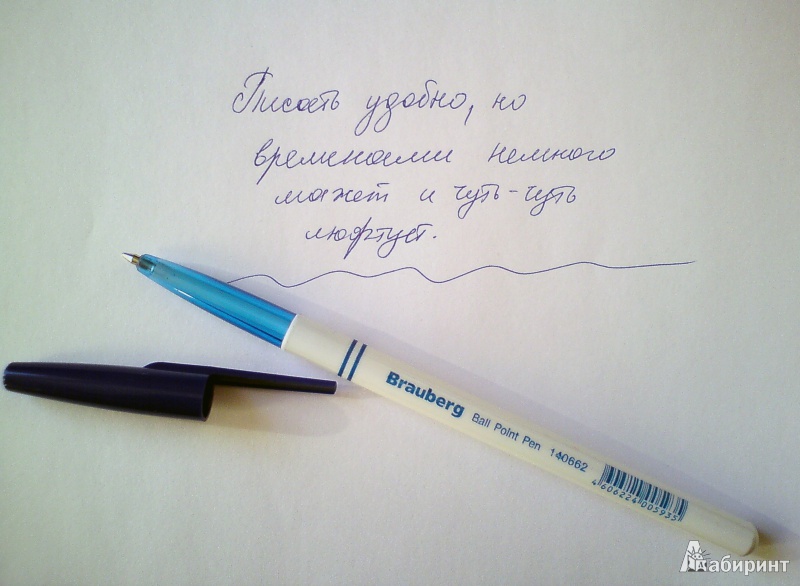 Писать удобно, но
временами немного
мажет и чуть-чуть
люфтует.
Brauberg Ball Point Pen 140662
4606224005935
Лабиринт